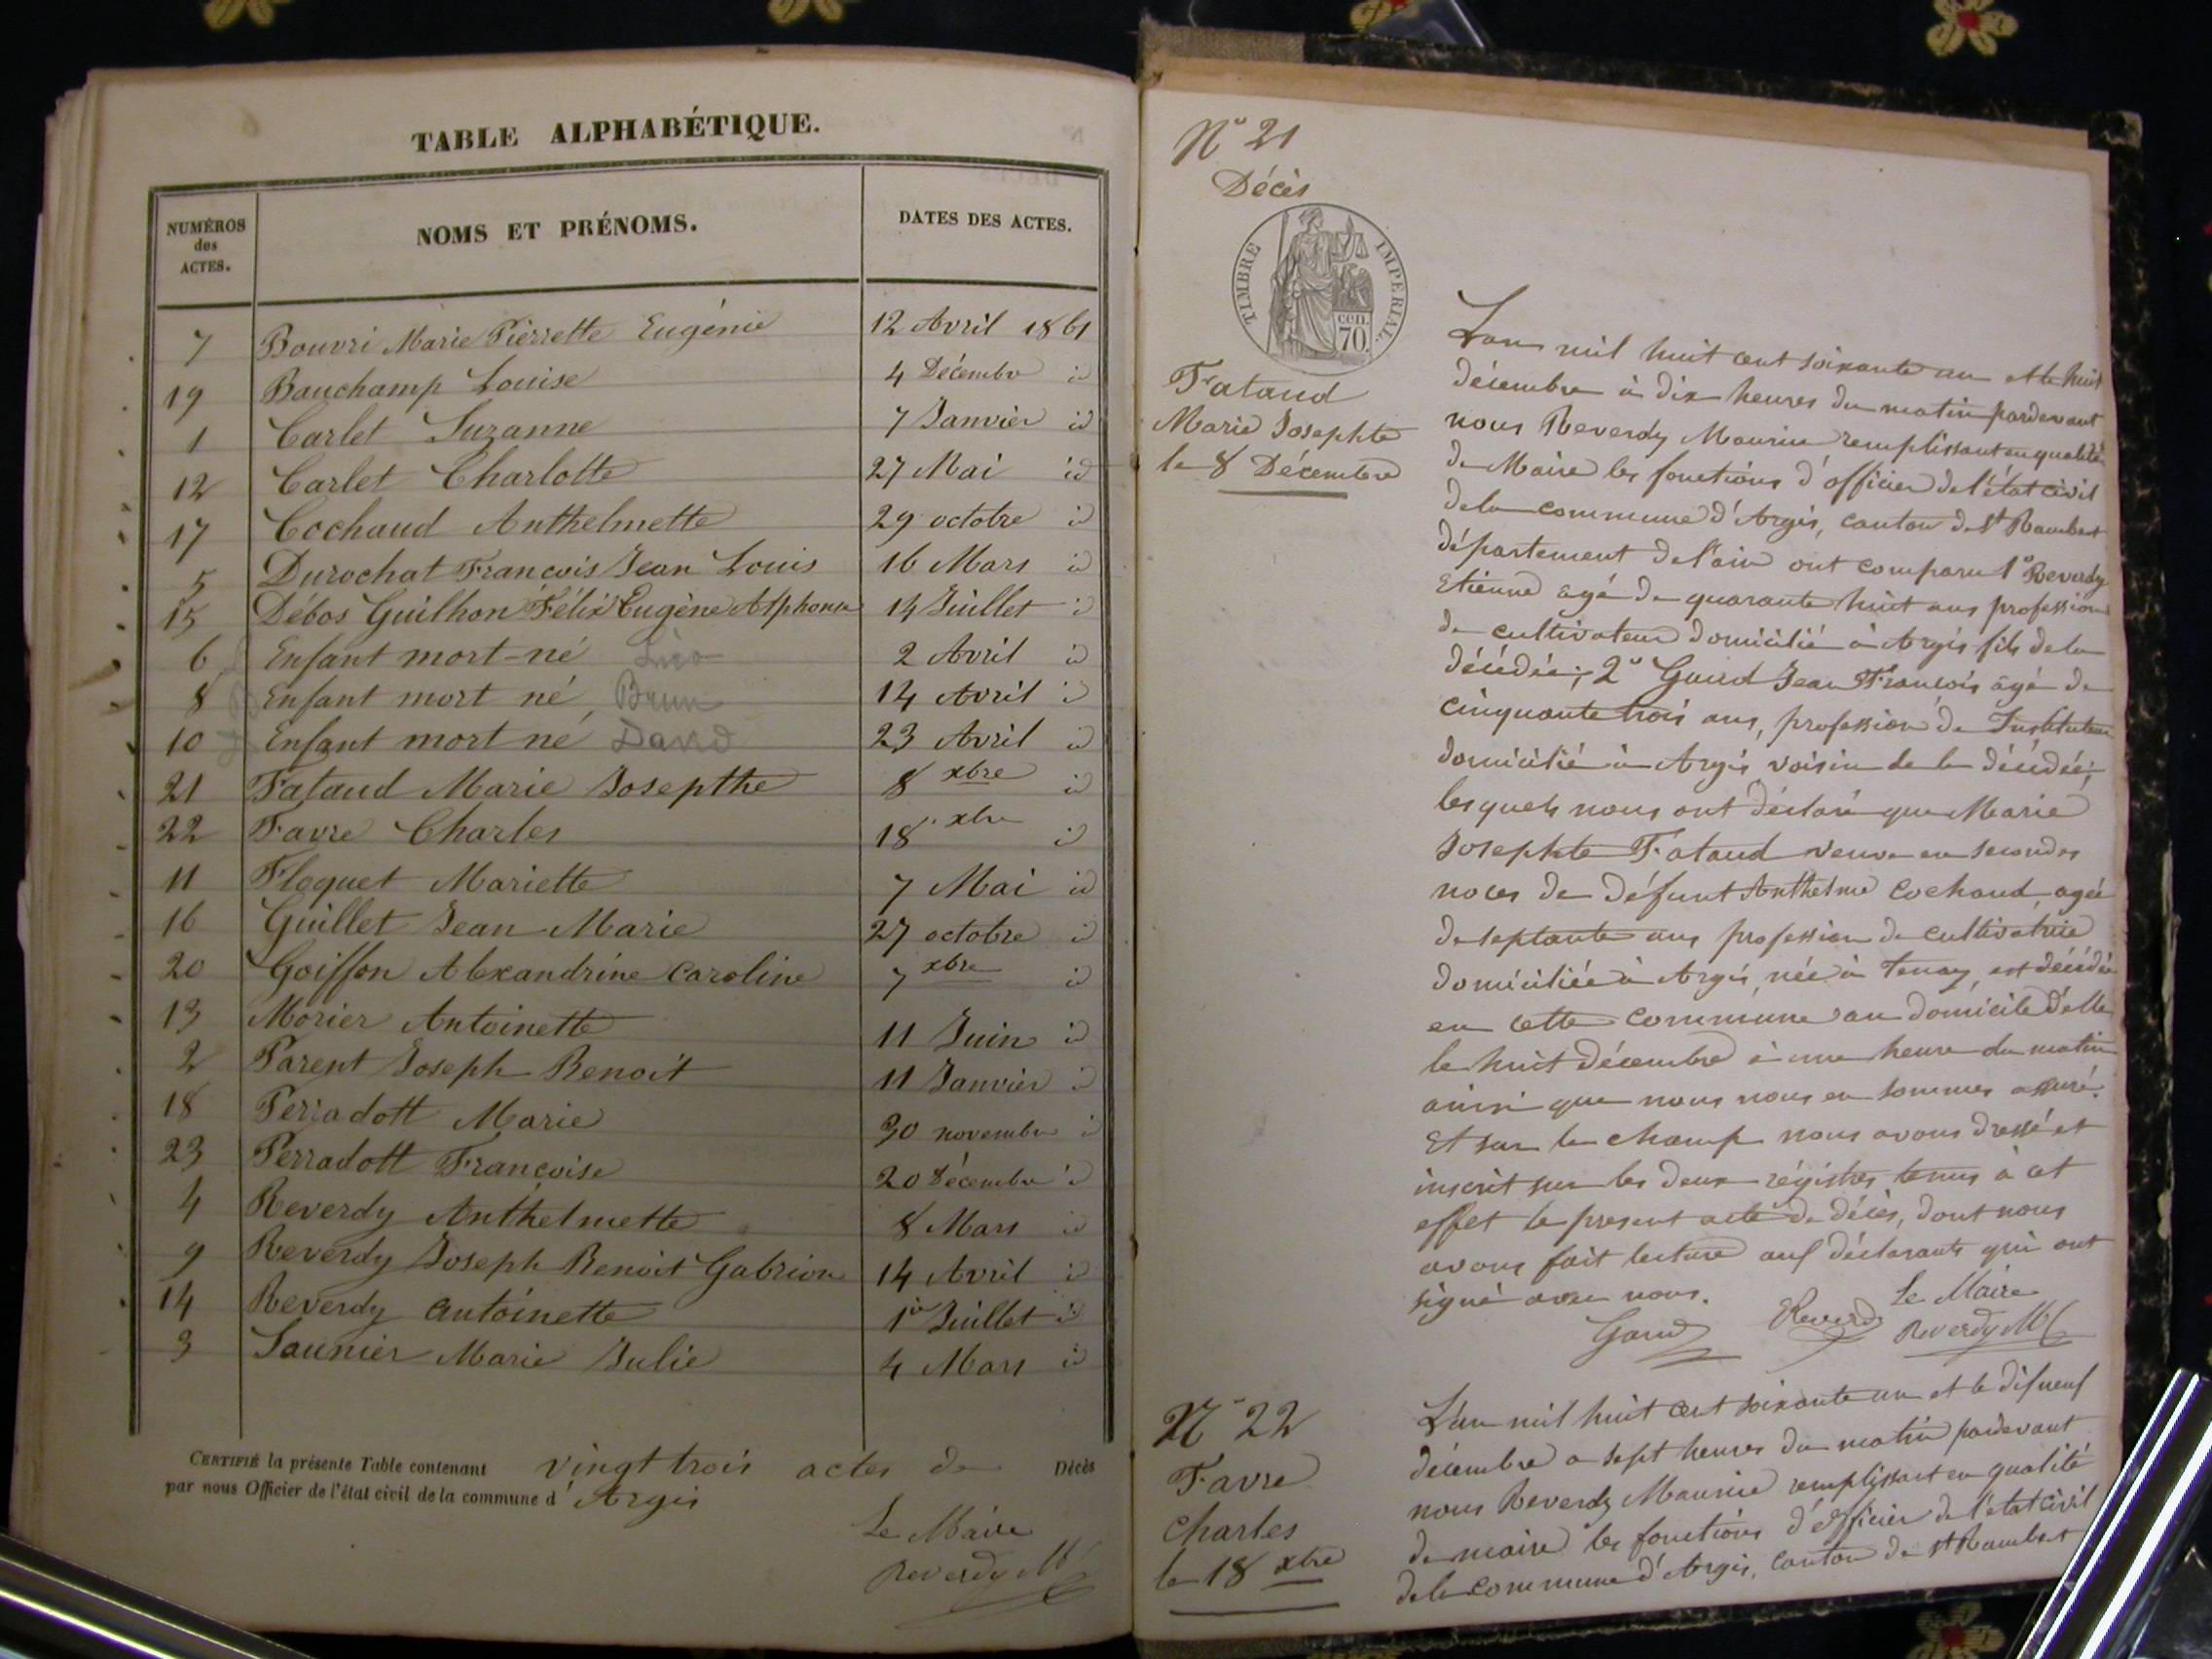 TABLE ALPHABÉTIQUE.
NUMÉROS des ACTES. NOMS ET PRÉNOMS. DATES DES ACTES.
7 Bouvri Marie Pierrette Eugénie 12 Avril 1861
19 Bauchamp Louise 4 Décembre id
1 Carlet Suzanne 7 Janvier id
12 Carlet Charlotte 27 Mai id
17 Cochaud Anthelmette 29 octobre id
5 Durochat François Jean Louis 16 Mars id
15 Débos Guilhon Félix Eugène Alphonse 14 Juillet id
6 Enfant mort-né 2 Avril id
8 Enfant mort né Brun 14 Avril id
10 Enfant mort né David 23 Avril id
21 Fataud Marie Josepthe 8 xbre id
22 Favre Charles 18 xbre id
11 Floquet Mariette 7 Mai id
16 Guillet Jean Marie 27 octobre id
20 Goiffon Alexandrine Caroline 7 xbre id
13 Morier Antoinette 11 Juin id
2 Parent Joseph Benoit 11 Janvier id
18 Perradott Marie 30 novembre id
23 Perradott Françoise 20 Décembre id
4 Reverdy Anthelmette 8 Mars id
9 Reverdy Joseph Benoit Gabrion 14 Avril id
14 Reverdy antoinette 1er Juillet id
3 Saunier Marie Julie 4 Mars id
CERTIFIÉ la présente Table contenant vingt trois actes de Décès
par nous Officier de l'état civil de la commune d' Argis
Le Maire
Reverdy M
N° 21
Décès
TIMBRE IMPÉRIAL.
cen.
70.
Fataud
Marie Josephte
le 8 Décembre
L'an mil huit cent soixante un et le huit
décembre à dix heures du matin pardevant
nous Reverdy Maurice remplissant en qualité
de Maire les fonctions d'officier de l'état civil
de la commune d'Argis, canton de St Rambert
département de l'ain ont comparu 1° Reverdy
Etienne agé de quarante huit ans profession
de cultivateur domicilié à Argis fils de la
décédée; 2° Gaud Jean François âgé de
cinquante trois ans, profession de Instituteur
domicilié à Argis, voisin de la décédée;
lesquels nous ont déclaré que Marie
Josephte Fataud veuve en secondes
noces de défunt Anthelme Cochaud, agée
de septante ans profession de cultivatrice
domiciliée à Argis, née à Tenay, est décédée
en cette commune au domicile d'elle
le huit décembre à une heure du matin
ainsi que nous nous en sommes assuré.
Et sur le champ nous avons dressé et
inscrit sur les deux régistres tenus à cet
effet le présent acte de décès, dont nous
avons fait lecture aux déclarants qui ont
signé avec nous. Le Maire
Gaud EReverdy Reverdy M
N° 22
Favre
Charles
le 18 xbre
L'an mil huit cent soixante un et le dixneuf
décembre a sept heures du matin pardevant
nous Reverdy Maurice remplissant en qualité
de maire les fonctions d'officier de l'etat civil
de la commune d'Argis, canton de st Rambert